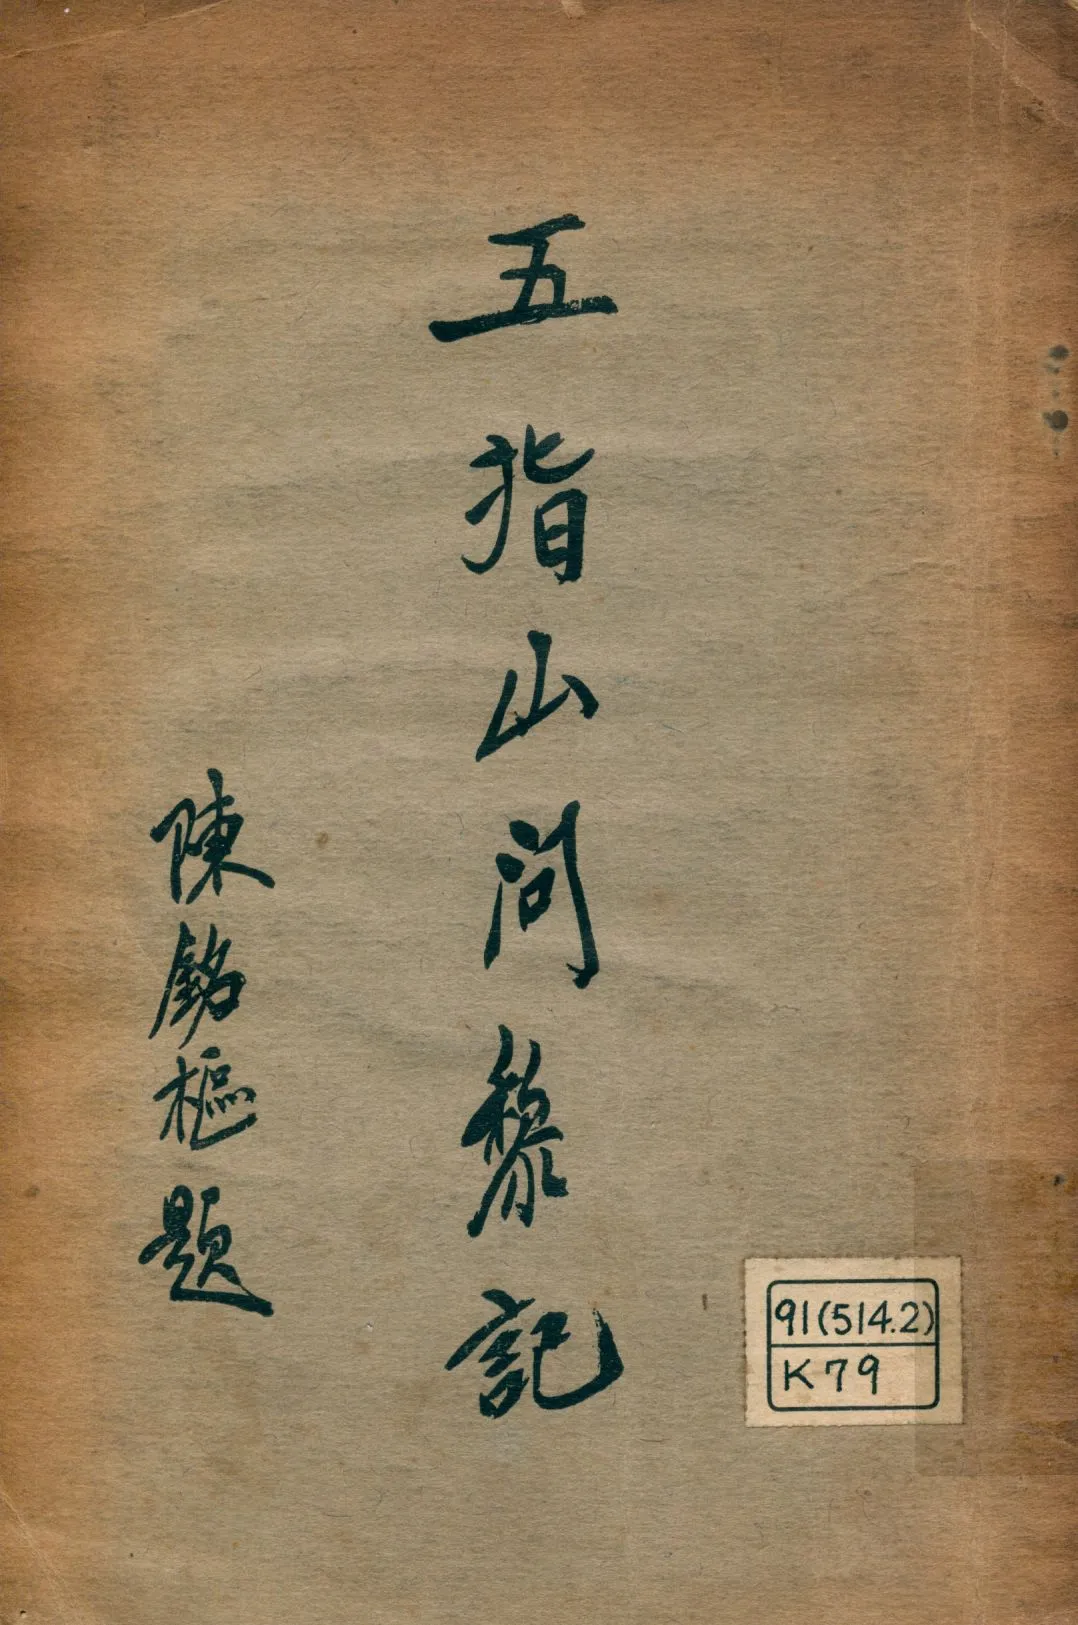 五指山問黎記
陳銘樞題
91(514.2)
K79